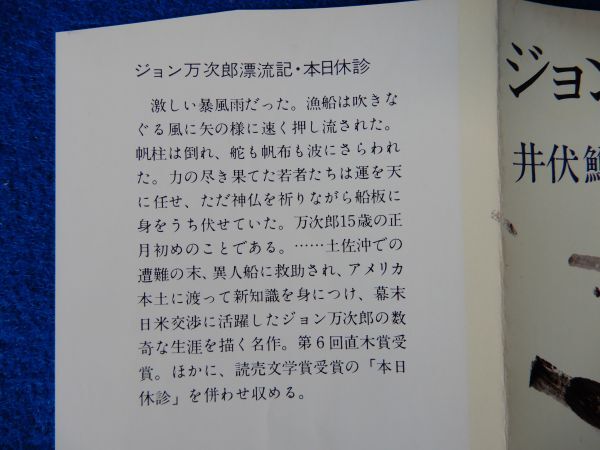 ジョン万次郎漂流記・本日休診
激しい暴風雨だった。漁船は吹きな
ぐる風に矢の様に速く押し流された。
帆柱は倒れ、舵も帆布も波にさらわれ
た。力の尽き果てた若者たちは運を天
に任せ、ただ神仏を祈りながら船板に
身をうち伏せていた。万次郎15歳の正
月初めのことである。……土佐沖での
遭難の末、異人船に救助され、アメリカ
本土に渡って新知識を身につけ、幕末
日米交渉に活躍したジョン万次郎の数
奇な生涯を描く名作。第6回直木賞受
賞。ほかに、読売文学賞受賞の「本日
休診」を併わせ収める。
ジョン
井伏鱒